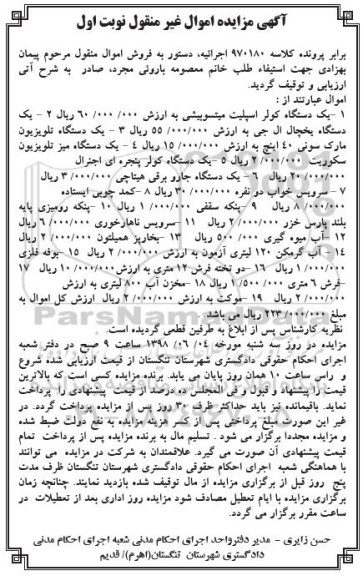 آگهی مزایده اموال غیر منقول نوبت اول
برابر پرونده کلاسه ۹۷۰۱۸۰ اجرائیه، دستور به فروش اموال منقول مرحوم پیمان
بهزادی جهت استیفاء طلب خانم معصومه بارونی مجرد، صادر به شرح آتی
ارزیابی و توقیف گردید.
اموال عبارتند از :
۱ -یک دستگاه کولر اسپلیت میتسوبیشی به ارزش ۶۰/۰۰۰/۰۰۰ ریال ۲ - یک
دستگاه یخچال ال جی به ارزش ۵۵/۰۰۰/۰۰۰ ریال ۳ - یک دستگاه تلویزیون
مارک سونی ۴۰ اینچ به ارزش ۱۵/۰۰۰/۰۰۰ ریال ۴ - یک دستگاه میز تلویزیون
سکوریت ۲/۰۰۰/۰۰۰ ریال ۵ -یک دستگاه کولر پنجره ای اجنرال
۲۰/۰۰۰/۰۰۰ ریال ۶ - یک دستگاه جارو برقی هیتاچی ۳/۰۰۰/۰۰۰ ریال
۷ - سرویس خواب دو نفره ۳۰/۰۰۰/۰۰۰ ریال ۸ -کمد چوبی ایستاده
۸/۰۰۰/۰۰۰ ریال ۹ -پنکه سقفی ۱/۰۰۰/۰۰۰ ریال ۱۰ -پنکه رومیزی پایه
بلند پارس خزر ۲/۰۰۰/۰۰۰ ریال ۱۱ -سرویس ناهارخوری ۶/۰۰۰/۰۰۰ ریال
۱۲- آب میوه گیری ۵۰۰/۰۰۰ ریال ۱۳ -بخارپز همیلتون ۲/۰۰۰/۰۰۰ ریال
۱۴- آب گرمکن ۱۲۰ لیتری آزمون به ارزش ۲/۰۰۰/۰۰۰ ریال ۱۵ -بوفه فلزی
۱/۰۰۰/۰۰۰ ریال ۱۶ -دو تخته فرش ۱۲ متری به ارزش ۱۰/۰۰۰/۰۰۰ ریال ۱۷
-فرش ۶ متری ۱/۵۰۰/۰۰۰ ریال ۱۸- مخزن آب ۸۰۰ لیتری به ارزش
۲/۰۰۰/۰۰۰ ریال ۱۹ -موکت به ارزش ۲/۰۰۰/۰۰۰ ریال ارزش کل اموال به
مبلغ ۲۲۳/۰۰۰/۰۰۰ ریال می باشد.
نظریه کارشناس پس از ابلاغ به طرفین قطعی گردیده است.
مزایده در روز سه شنبه مورخه ۱۳۹۸/۰۶/۰۴ ساعت ۹ صبح در دفتر شعبه
اجرای احکام حقوقی دادگستری شهرستان تنگستان از قیمت ارزیابی شده شروع
و راس ساعت ۱۰ همان روز پایان می یابد. برنده مزایده کسی است که بالاترین
قیمت را پیشنهاد و قبول و فی المجلس ده درصد از قیمت پیشنهادی را پرداخت
نماید. باقیمانده نیز باید حداکثر ظرف ۳۰ روز پس از مزایده پرداخت گردد. در
غیر این صورت مبلغ پرداختی پس از کسر هزینه مزایده به نفع دولت ضبط شده
و مزایده مجددا برگزار می شود . تسلیم مال به برنده مزایده پس از پرداخت تمام
قیمت پیشنهادی آن صورت می گیرد. علاقمندان به شرکت در مزایده می توانند
با هماهنگی شعبه اجرای احکام حقوقی دادگستری شهرستان تنگستان ظرف مدت
پنج روز قبل از برگزاری مزایده از مال توقیف شده بازدید نمایند. چنانچه زمان
برگزاری مزایده با ایام تعطیل مصادف شود مزایده روز اداری بعد از تعطیلات در
ساعت مقرر برگزار می گردد.
حسن زایری - مدیر دفترواحد اجرای احکام مدنی شعبه اجرای احکام مدنی
دادگستری شهرستان تنگستان(اهرم)/ قدیم
ParsNamad